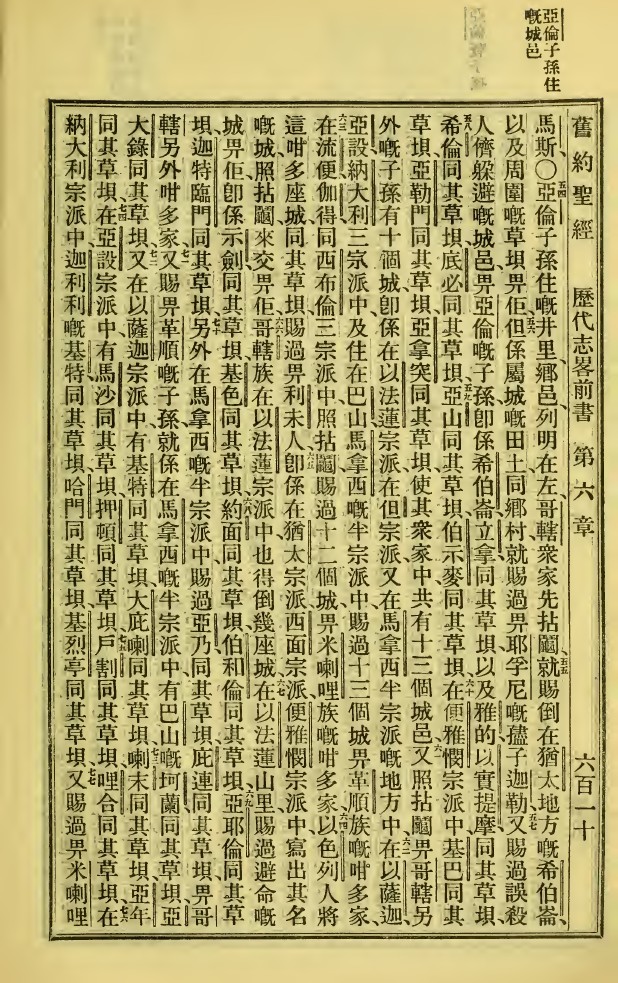 亞倫子孫住
嘅城邑
舊約聖經 歷代志畧前書 第六章 六百一十
馬斯〇五四亞倫子孫住嘅井里鄉邑列明在左哥轄衆家先拈鬮五五就賜倒在猶太地方嘅希伯崙
以及周圍嘅草埧畀佢五六但係屬城嘅田土同鄉村就賜過畀耶孚尼嘅儘子迦勒五七又賜過誤殺
人儕躱避嘅城邑畀亞倫嘅子孫卽係希伯崙立拿同其草埧以及雅的以實提摩同其草埧
五八希倫同其草埧底必同其草埧五九亞山同其草埧伯示麥同其草埧六十在便雅憫宗派中基巴同其
草埧亞勒門同其草埧亞拿突同其草埧使其衆家中共有十三個城邑六一又照拈鬮畀哥轄另
外嘅子孫有十個城卽係在以法蓮宗派在但宗派又在馬拿西半宗派嘅地方中六二在以薩迦
亞設納大利三宗派中及住在巴山馬拿西嘅半宗派中賜過十三個城畀革順族嘅咁多家
六三在流便伽得同西布倫三宗派中照拈鬮賜過十二個城畀米喇哩族嘅咁多家六四以色列人將
這咁多座城同其草埧賜過畀利未人六五卽係在猶太宗派西面宗派便雅憫宗派中寫出其名
嘅城照拈鬮來交畀佢六六哥轄族在以法蓮宗派中也得倒幾座城六七在以法蓮山里賜過避命嘅
城畀佢卽係示劍同其草埧基色同其草埧六八約面同其草埧伯和倫同其草埧六九亞耶倫同其草
埧迦特臨門同其草埧七十另外在馬拿西嘅半宗派中賜過亞乃同其草埧庇連同其草埧畀哥
轄另外咁多家七一又賜畀革順嘅子孫就係在馬拿西嘅半宗派中有巴山嘅坷蘭同其草埧亞
大錄同其草埧七二又在以薩迦宗派中有基特同其草埧大庇喇同其草埧七三喇末同其草埧亞年
同其草埧七四在亞設宗派中有馬沙同其草埧押頓同其草埧七五戶割同其草埧哩合同其草埧七六在
納大利宗派中迦利利嘅基特同其草埧哈門同其草埧基烈亭同其草埧七七又賜過畀米喇哩